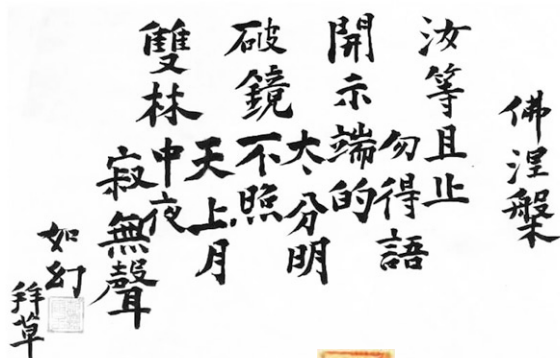 佛涅槃
汝等且止
勿得語
開示端的
太分明
破鏡不照
天上月
雙林中夜
寂無聲
如幻
拜草